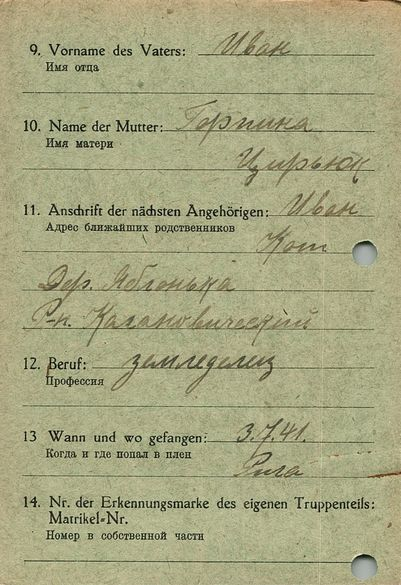 9. Vorname des Vaters: Иван
Имя отца
10. Name der Mutter: Горпина
Имя матери
Цирьюк
11. Anschrift der nächsten Angehörigen: Иван
Адрес ближайших родственников
Кот
Дер. Яблонька
Р-н. Кагановический
12. Beruf: земледелец
Профессия
13 Wann und wo gefangen: 3.7.41.
Когда и где попал в плен
Рига
14. Nr. der Erkennungsmarke des eigenen Truppenteils:
Matrikel-Nr.
Номер в собственной части